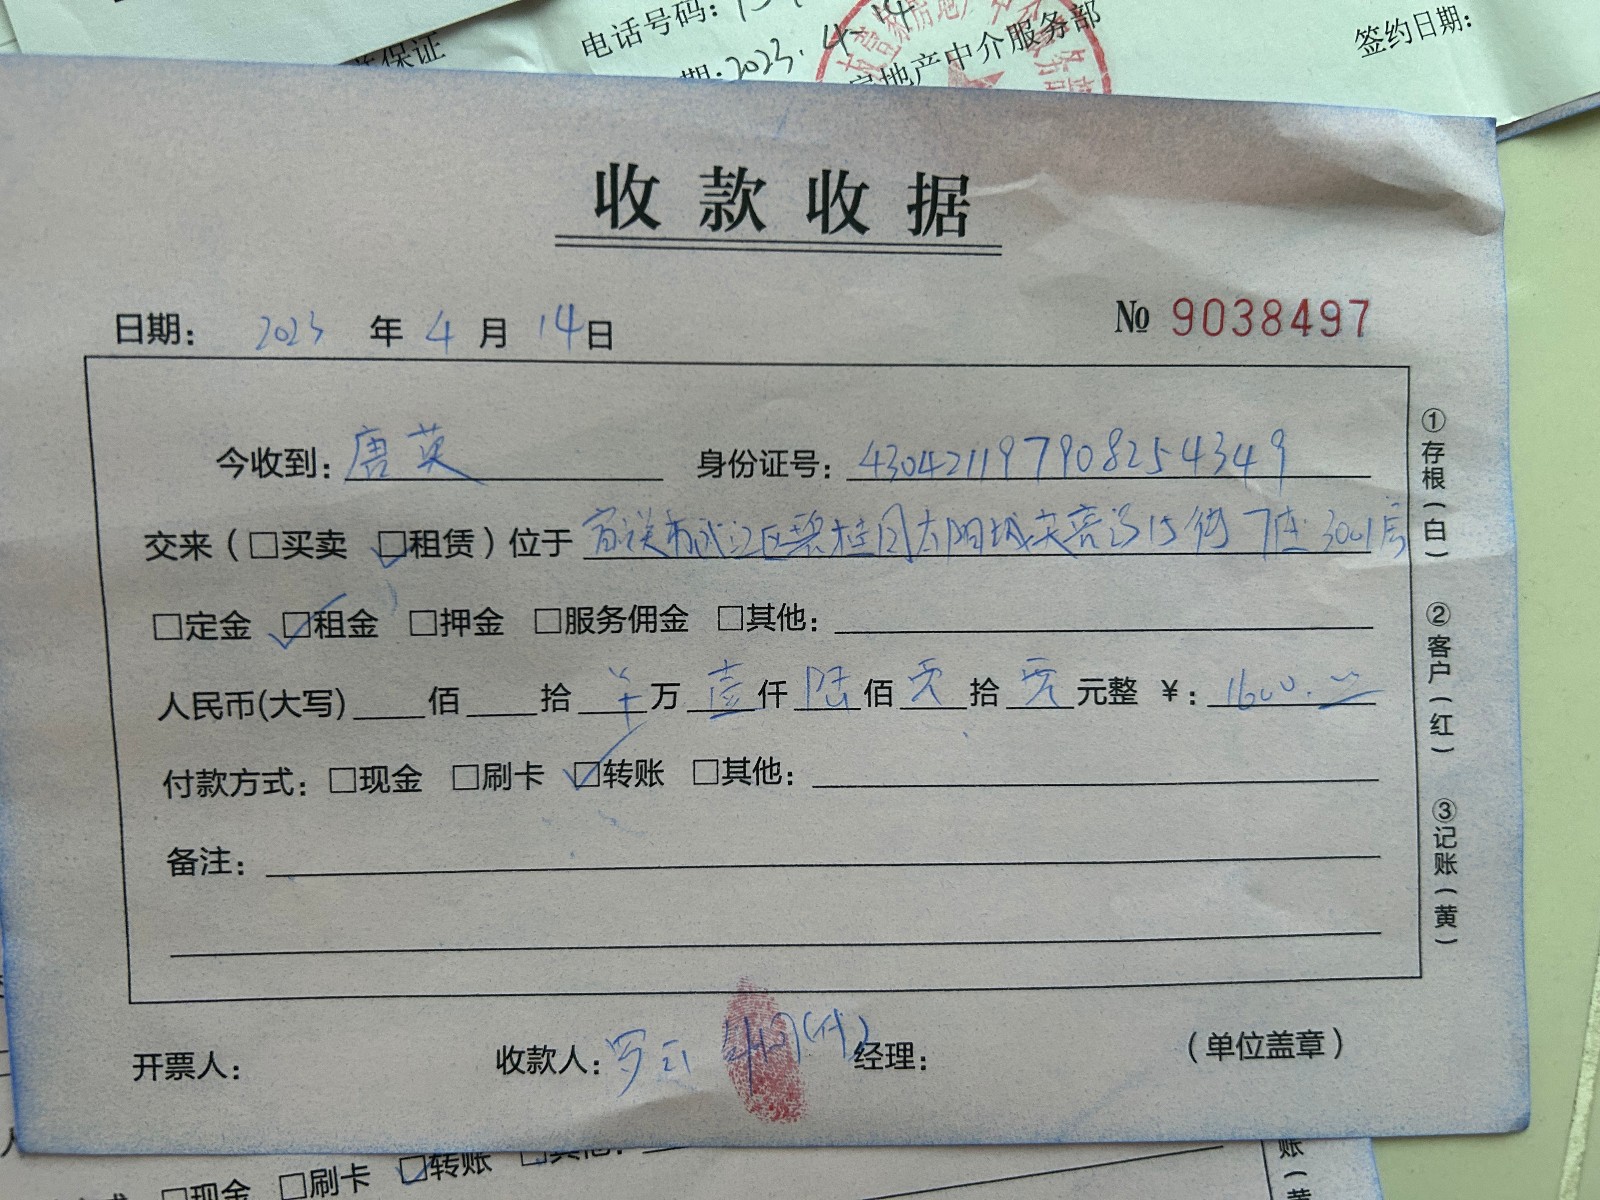 电话号码:
保证
期:2023.4.14
房地产中介服务部
签约日期:
收款收据
日期: 2023 年 4 月 14 日 № 9038497
今收到: 唐英 身份证号: 430421197908254349
交来(□买卖 ☑租赁)位于 市武江区碧桂园太阳城 15街 7栋 3001房
□定金 ☑租金 □押金 □服务佣金 □其他:
人民币(大写) 佰 拾 万 壹仟 陆佰 零拾 零元整 ¥: 1600.00
付款方式: □现金 □刷卡 ☑转账 □其他:
备注:
开票人: 收款人: 罗 (代) 经理: (单位盖章)
①存根(白) ②客户(红) ③记账(黄)
□现金 □刷卡 ☑转账 □其他:
账(黄